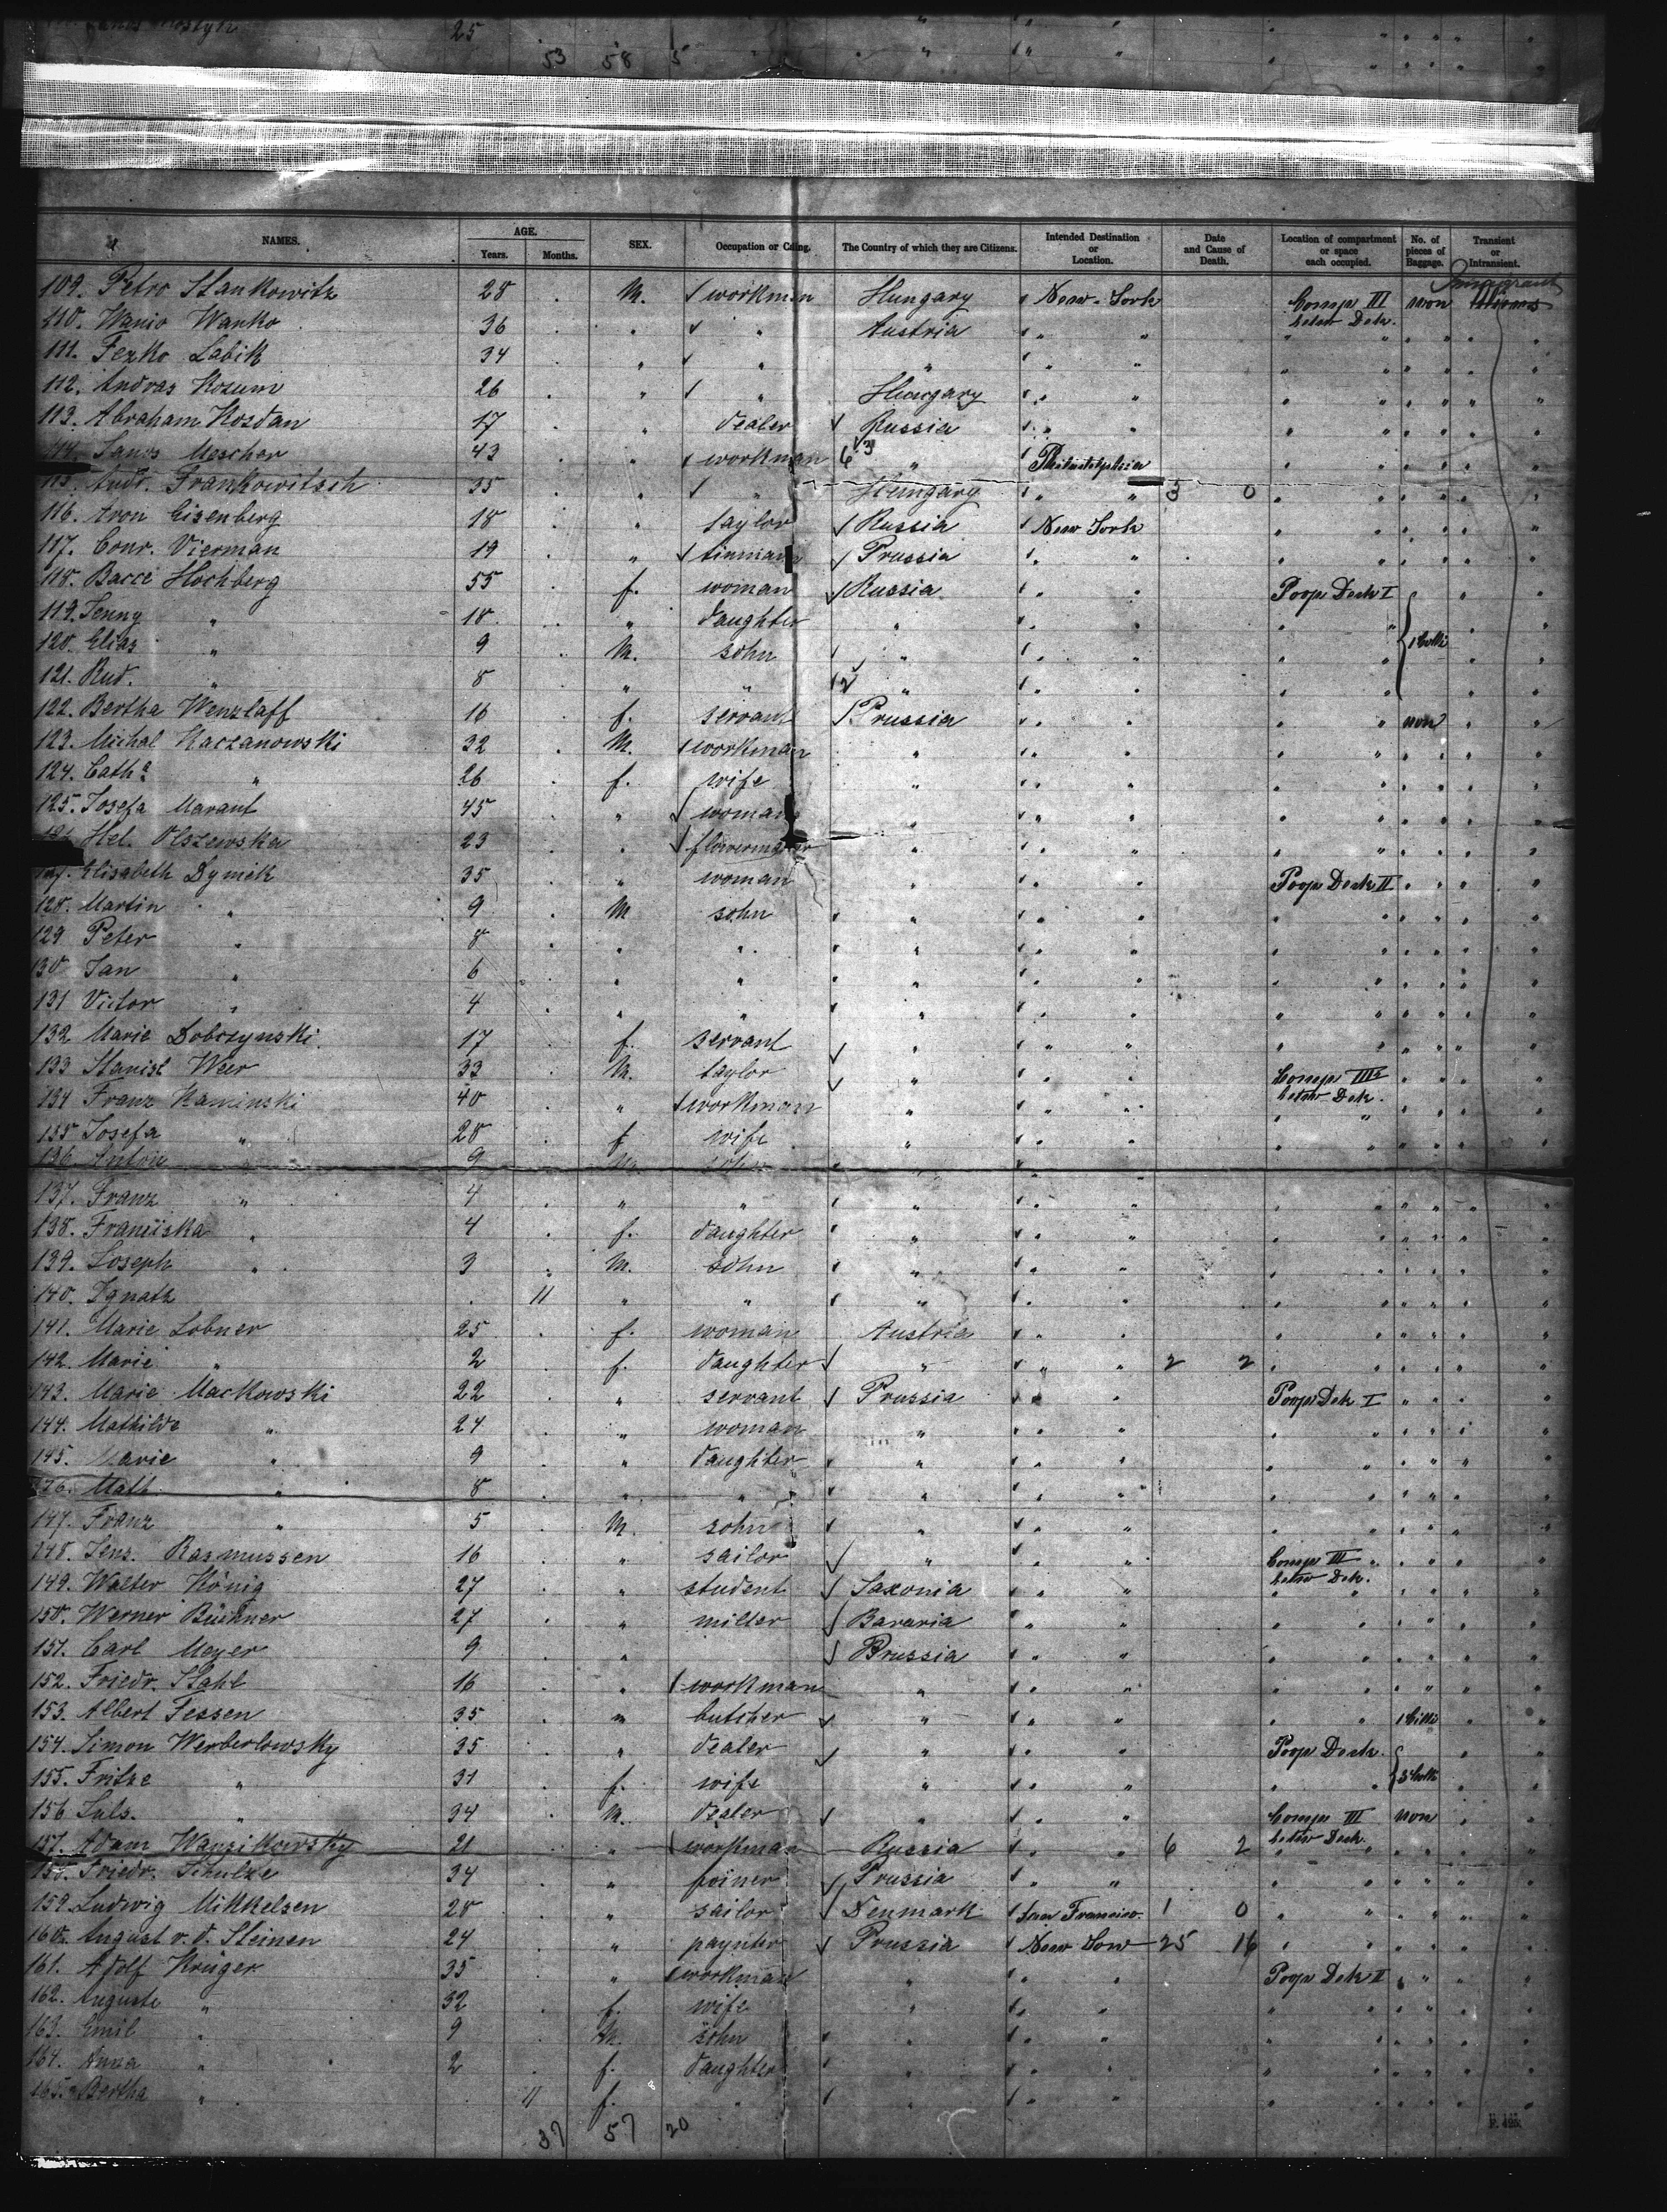 25
53 58 5
NAMES. AGE. Years. Months. SEX. Occupation or Calling. The Country of which they are Citizens. Intended Destination or Location. Date and Cause of Death. Location of compartment or space each occupied. No. of pieces of Baggage. Transient or Intransient.
Immigrant
109. Petro Stankowitz 28 . M. workman Hungary New-York Comp III betw Dek. non
110. Wanio Wanko 36 . " " Austria " "
111. Fezko Labik 34 " " " " "
112. Andras Kozum 26 . " " Hungary " "
113. Abraham Kosdan 17 . " dealer Russia " "
114. Meschar 43 . " workman " Philadelphia
115. Andr. Frankowitsch 35 " " Hungary " " 3 0
116. Aron Eisenberg 18 . " taylor Russia New York
117. Conr. Vierman 19 . " tinmann Prussia " "
118. Bacce Hochberg 55 . f. woman Russia " " Poop Deck I
119. Jenny " 18 . " daughter " " "
120. Elias " 9 . M. sohn " " " 1 Colli
121. Rud. " 8 . " " " " "
122. Bertha Wenzlaff 16 . f. servant Prussia " " " non
123. Michal Kaczanowski 32 . M. workman " " "
124. Cath.a " 26 . f. wife " " "
125. Josefa Marant 45 . " woman " " "
Hel. Olszewska 23 . " flowermaker " " "
127. Elisabeth Dymek 35 . " woman " " " Poop Deck II
128. Martin " 9 . M sohn " " "
129 Peter " 8 . " " " " "
130 Jan " 6 . " " " " "
131 Victor " 4 . " " " " "
132 Marie Dobczynski. 17 . f. servant " " "
133 Stanisl Weer 33 . M. taylor " " " Comp III betw Dek.
134 Franz Kaminski 40 . " workman " " "
135 Josefa " 28 . f wife " " "
136 Anton " 9 . M. sohn " " "
137. Franz " 4 . " " " " "
138. Franciska " 4 . f. daughter " " "
139. Joseph " 3 " M. sohn " " "
140. Ignatz . 11 " " " " "
141. Marie Lobner 25 . f. woman Austria " "
142. Marie " 2 . f. daughter " " " 2 2
143. Marie Mackowski 22 . " servant Prussia " " Poop Dek I
144. Mathilde " 24 . " woman " " "
145. Marie " 9 . " daughter " " "
146. Math. " 8 . " " " " "
147. Franz " 5 . M. sohn " " "
148. Jens. Rasmussen 16 . " sailor " " " Comp III betw Dek.
149. Walter König 27 . " student Saxonia " "
150. Werner Büchner 27 . " miller Bavaria " "
151. Carl Meyer 9 . " Prussia " "
152. Friedr. Stahl 16 . " workman " " "
153. Albert Fessen 35 . " butcher " " " 1 Colli
154. Simon Werberlowsky 35 . " dealer " " " Poop Deck.
155. Fritze " 31 . f. wife " " " 3 Colli
156. Juls. " 34 . M. dealer " " " Comp III betw Deck. non
157. Adam Wanzikowsky 21 " workman Russia " " 6 2
158. Friedr. Schulze 34 . " joiner Prussia " "
159. Ludwig Mikkelsen 28 . " sailor Denmark San Francisco. 1 0
160. August v. d. Steinen 24 . " paynter Prussia New 25 16
161. Adolf Krüger 35 " workman " " " Poop Dek II
162. Auguste " 32 . f. wife " " "
163. Emil " 9 . M. sohn " " "
164. Anna " 2 . f. daughter " " "
165. Bertha " . 11 f. " " " "
37 57 20